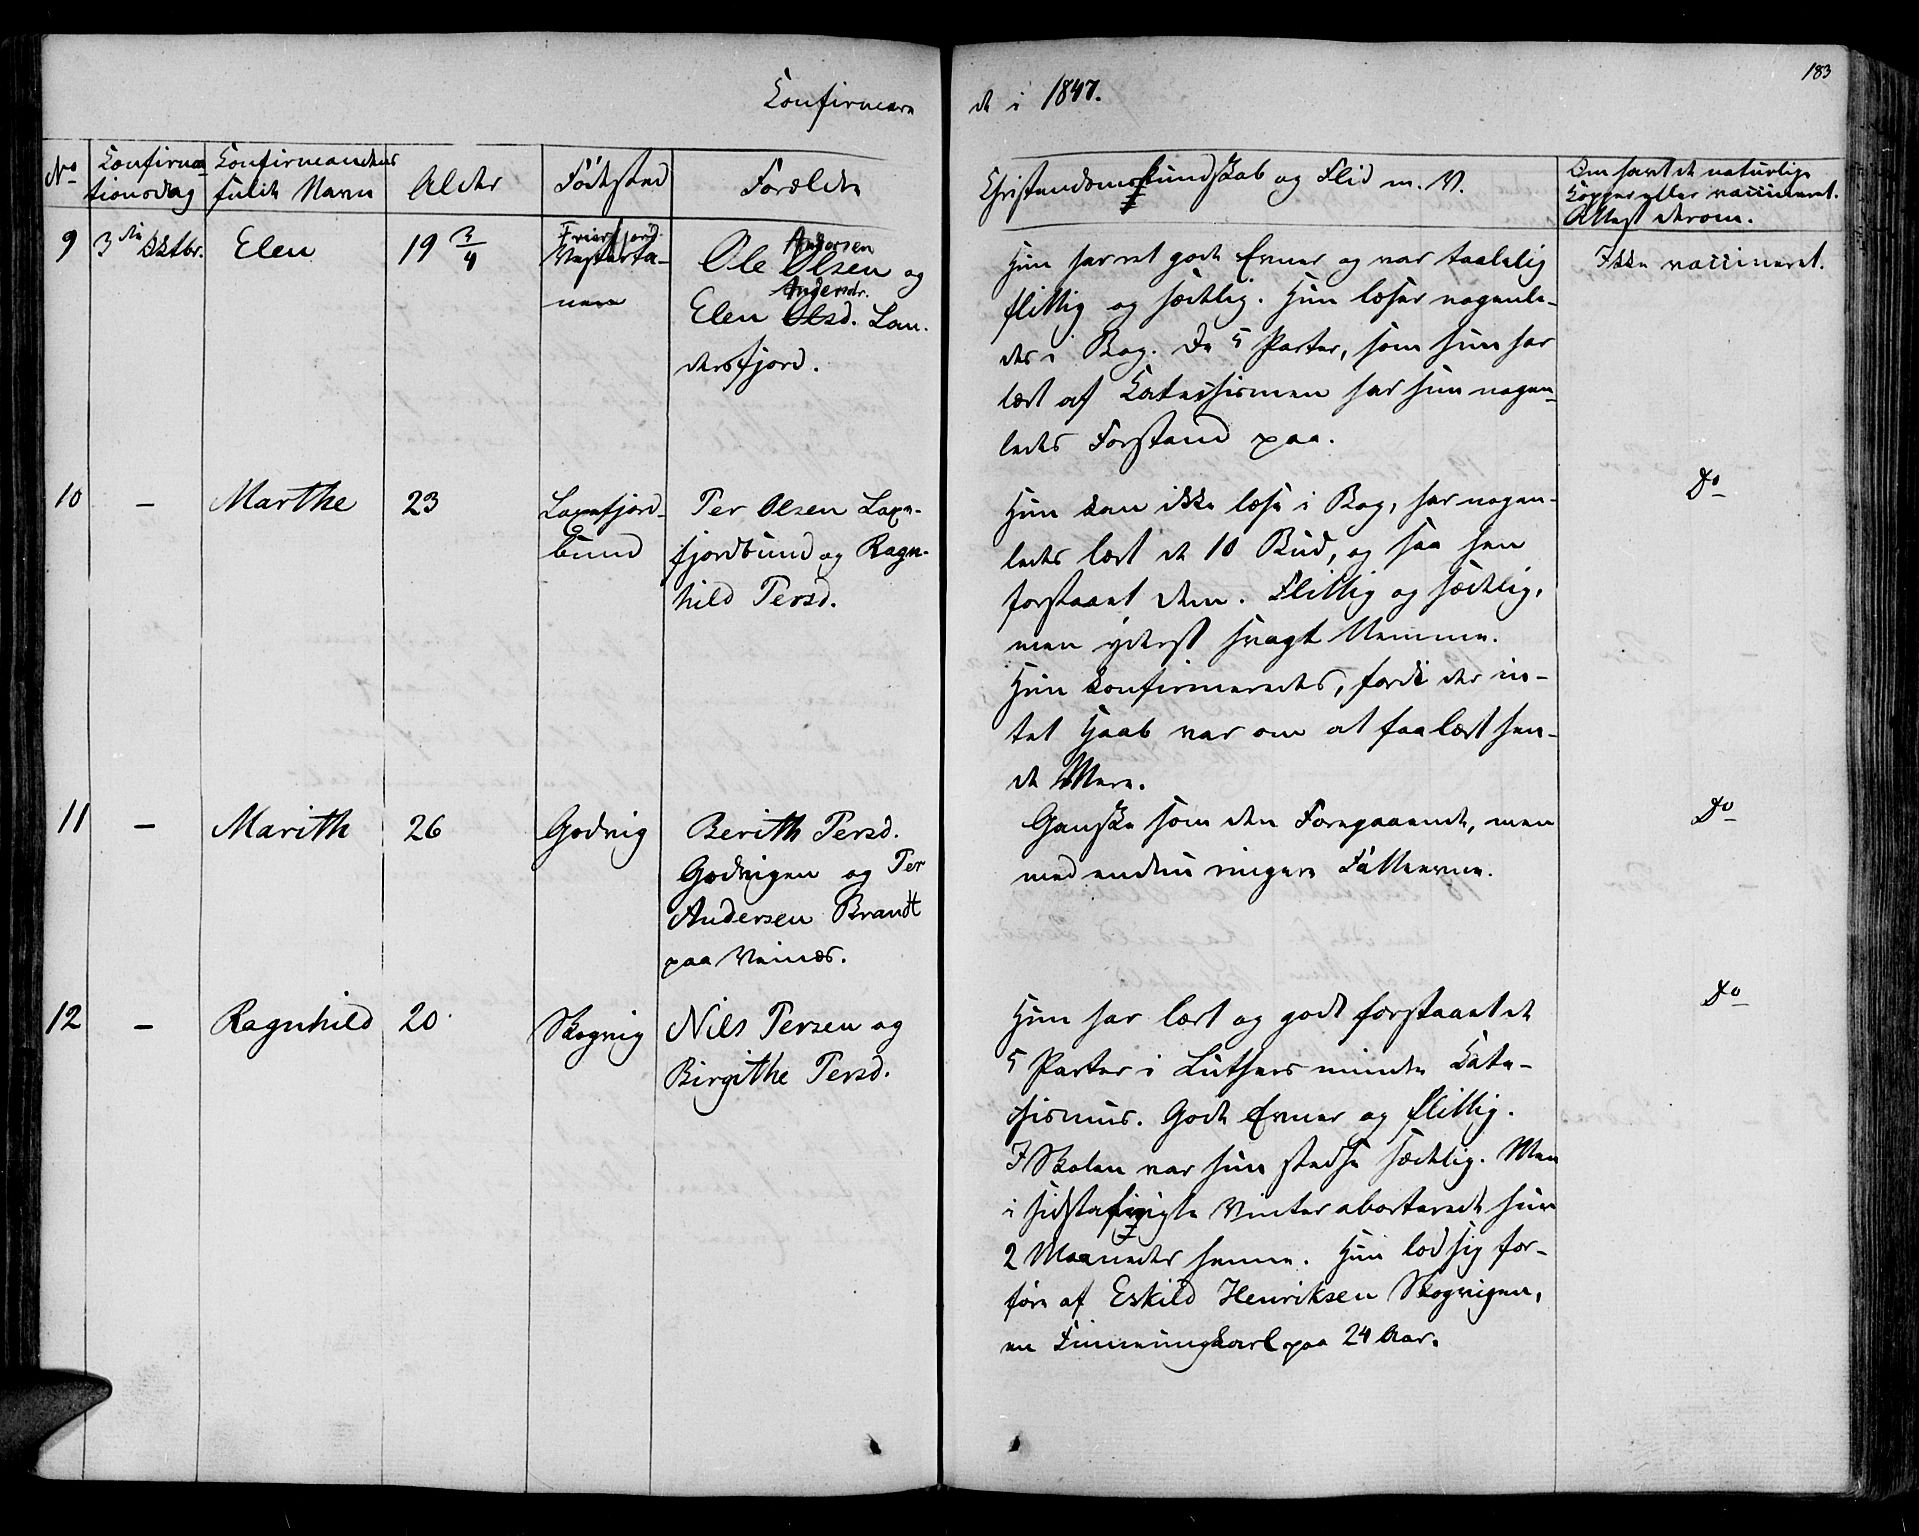 183
Confirmere
de i 1847.
No
Confirma
tionsdag
Confirmandens
fulde Navn
Alder
Fødested
Forældre
Christendomskundskab og Flid m. V.
Om havt de naturlige
Kopper eller vaccineret.
Attest derom.
9
3die Oktbr.
Elen
19 3/4
Friersfjord
Vesterta-
nen
Andersen
Ole Olsen og
Andersdr.
Elen Olsd. Lan-
dersfjord.
Hun havet gode Evner og var taalelig
flittig og sædelig. Hun læser nogenle-
des i Bog. De 5 Parter, som hun har
lært af Catechismen har hun nogen-
ledes Forstand paa.
Ikke vaccineret.
10
—
Marthe
23
Laxefjord-
bund
Per Olsen Laxe-
fjordbund og Ragn-
hild Persd.
Hun kan ikke læse i Bog, har nogen-
ledes lært de 10 Bud, og saa hen
forstaaet dem. Flittig og sædelig,
men yderst svagt Nemme.
Hun konfirmeredes, fordi der in-
tet Haab var om at faa lært hen-
de Mere.
Do
11
—
Marith
26
Godvig
Berith Persd.
Godvigen og Per
Andersen Brandt
paa Veines.
Ganske som den Foregaaende, men
med endnu ringere Fatteevne.
Do
12
—
Ragnhild
20
Skogvig
Nils Persen og
Birgithe Persd.
Hun har lært og godt forstaaet de
5 Parter i Luthers mindre Cate-
chismus. Gode Evner og flittig.
I Skolen var hun stedse sædelig. Men
i sidstafvigte Vinter aborterede hun
2 Maaneder henne. Hun lod sig for-
føre af Eskild Henriksen Skogvigen,
en Finneungkarl paa 24 Aar.
Do